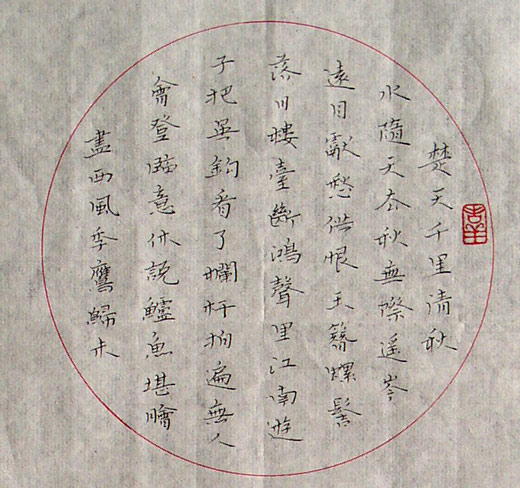 楚天千里清秋
水隨天去秋無際遥岑
遠目獻愁供恨玉簪螺髻
落日樓臺斷鴻聲里江南遊
子把吳鈎看了欄杆拍遍無人
會登臨意休說鱸魚堪膾
盡西風季鷹歸未
吉羊